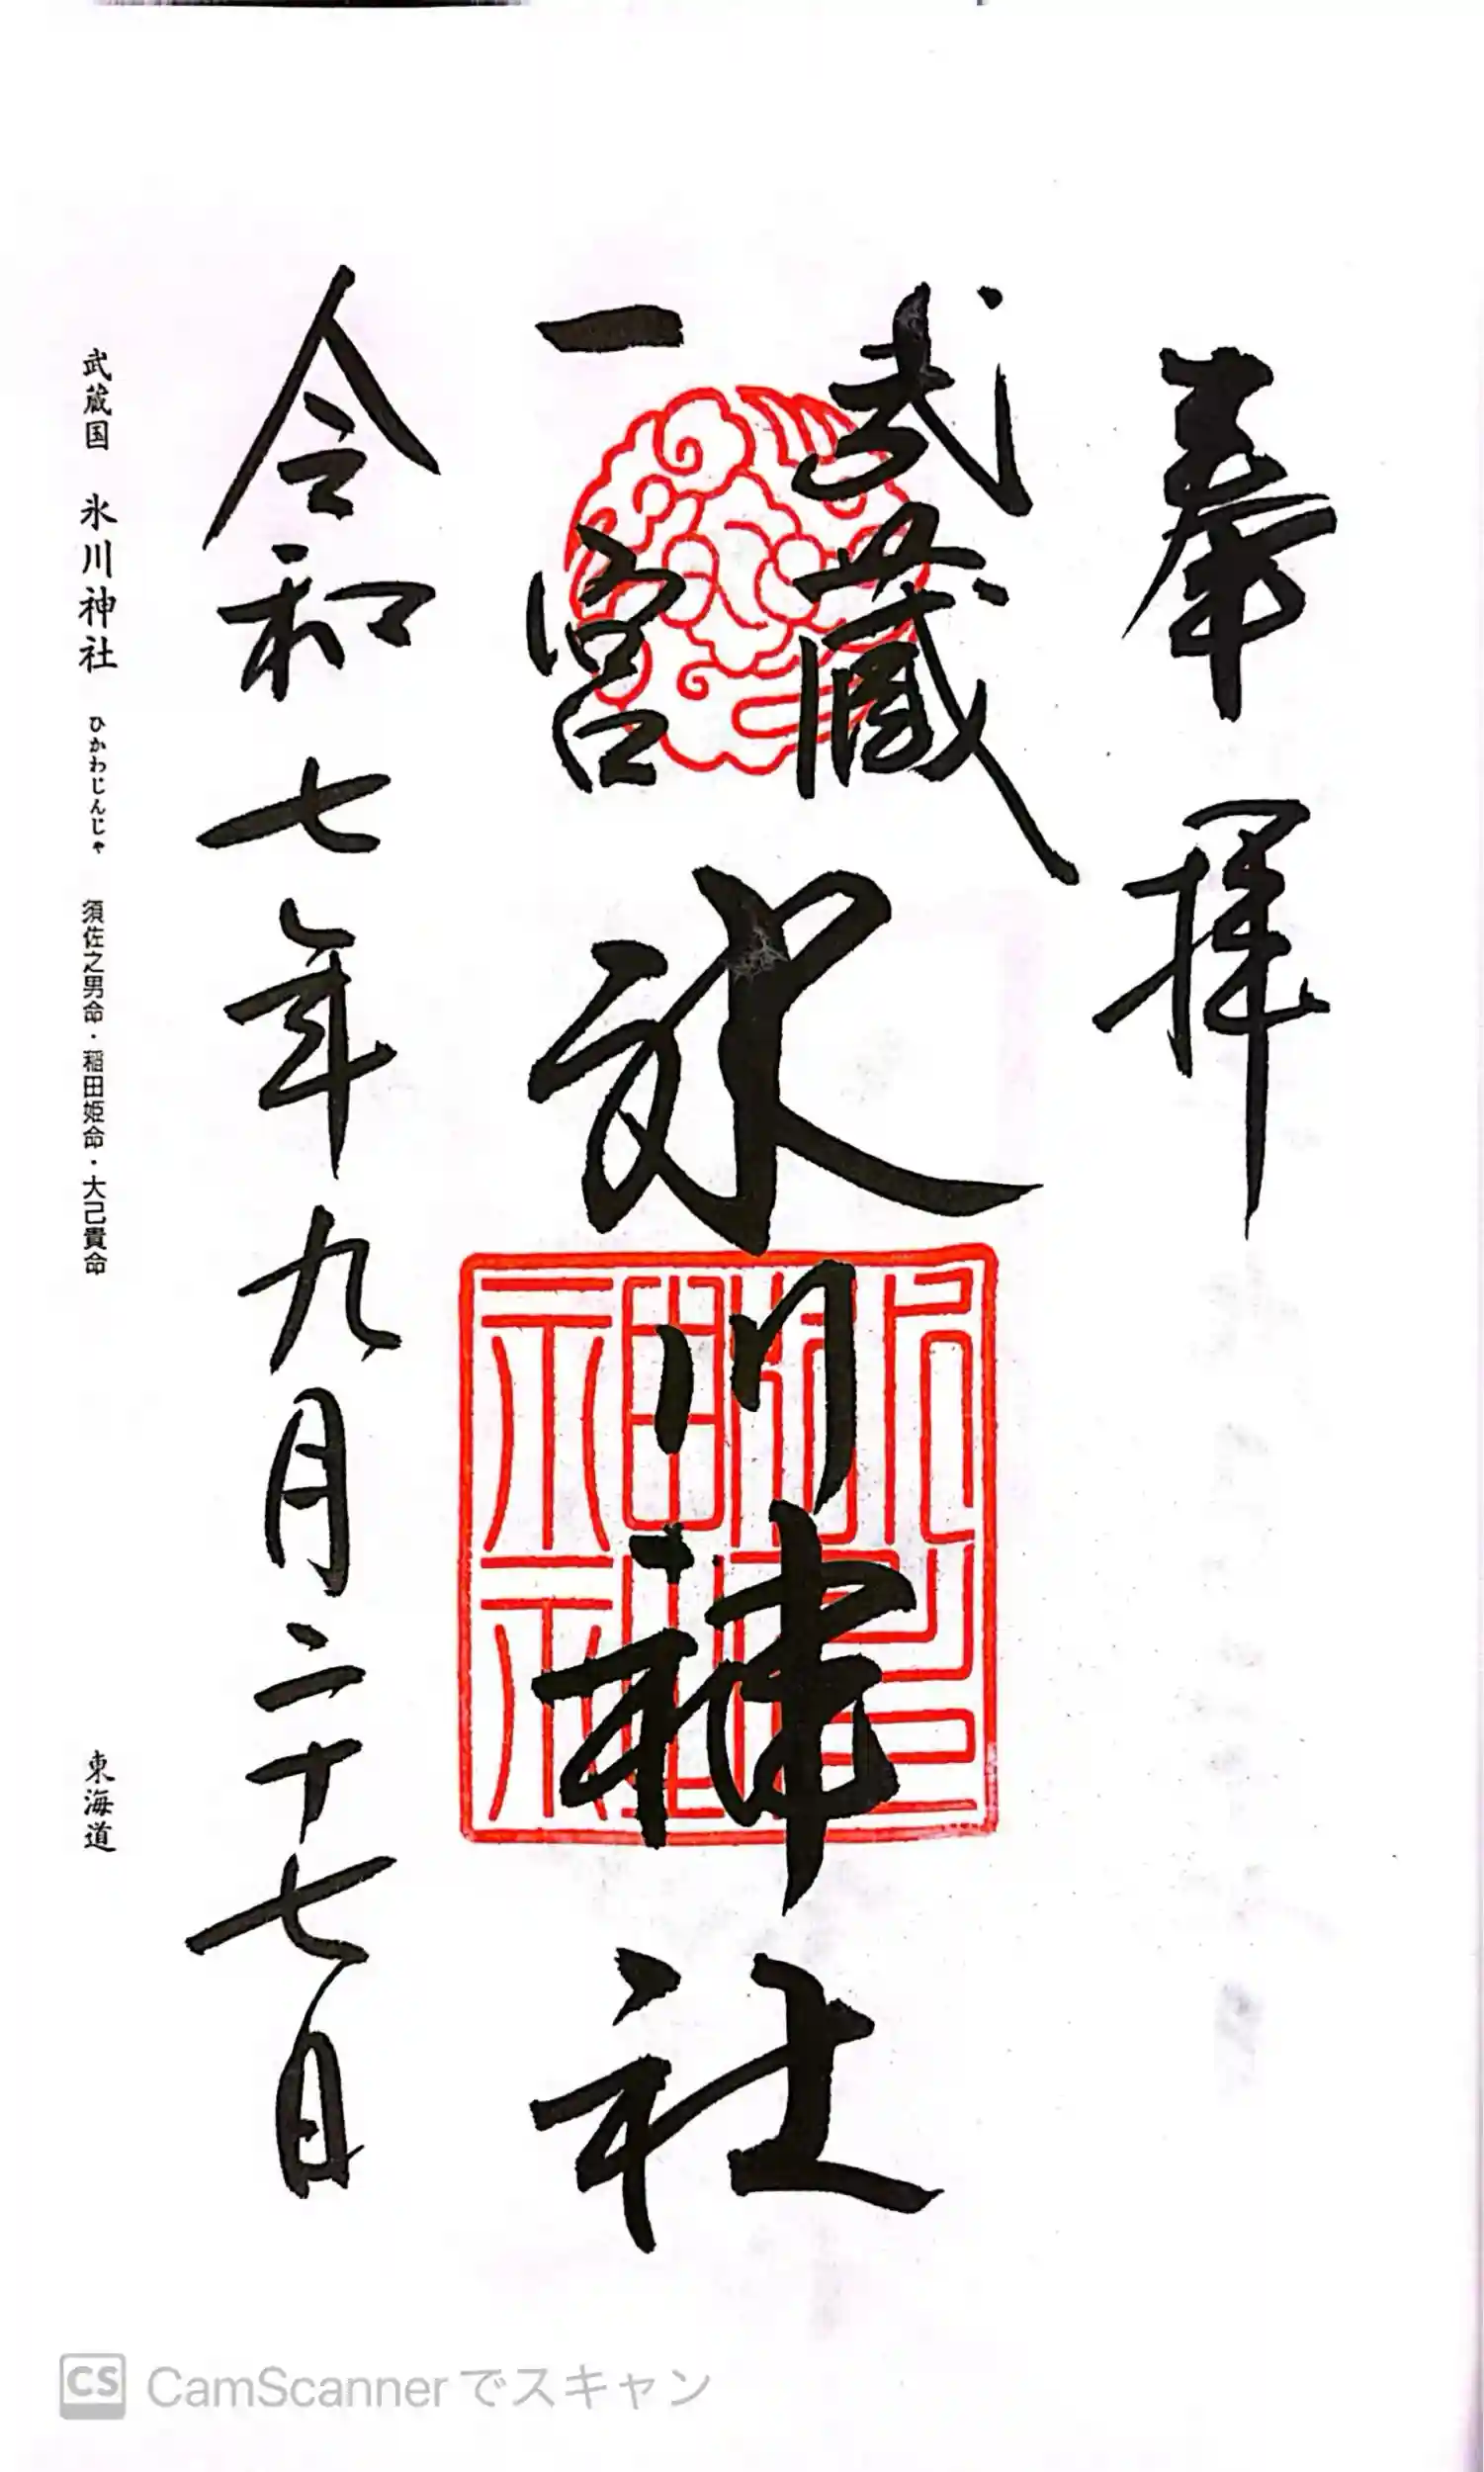 奉拝
武蔵
一宮
氷川神社
令和七年九月二十七日
武蔵国 氷川神社 ひかわじんじゃ 須佐之男命・稲田姫命・大己貴命 東海道
氷川神社
CS CamScannerでスキャン